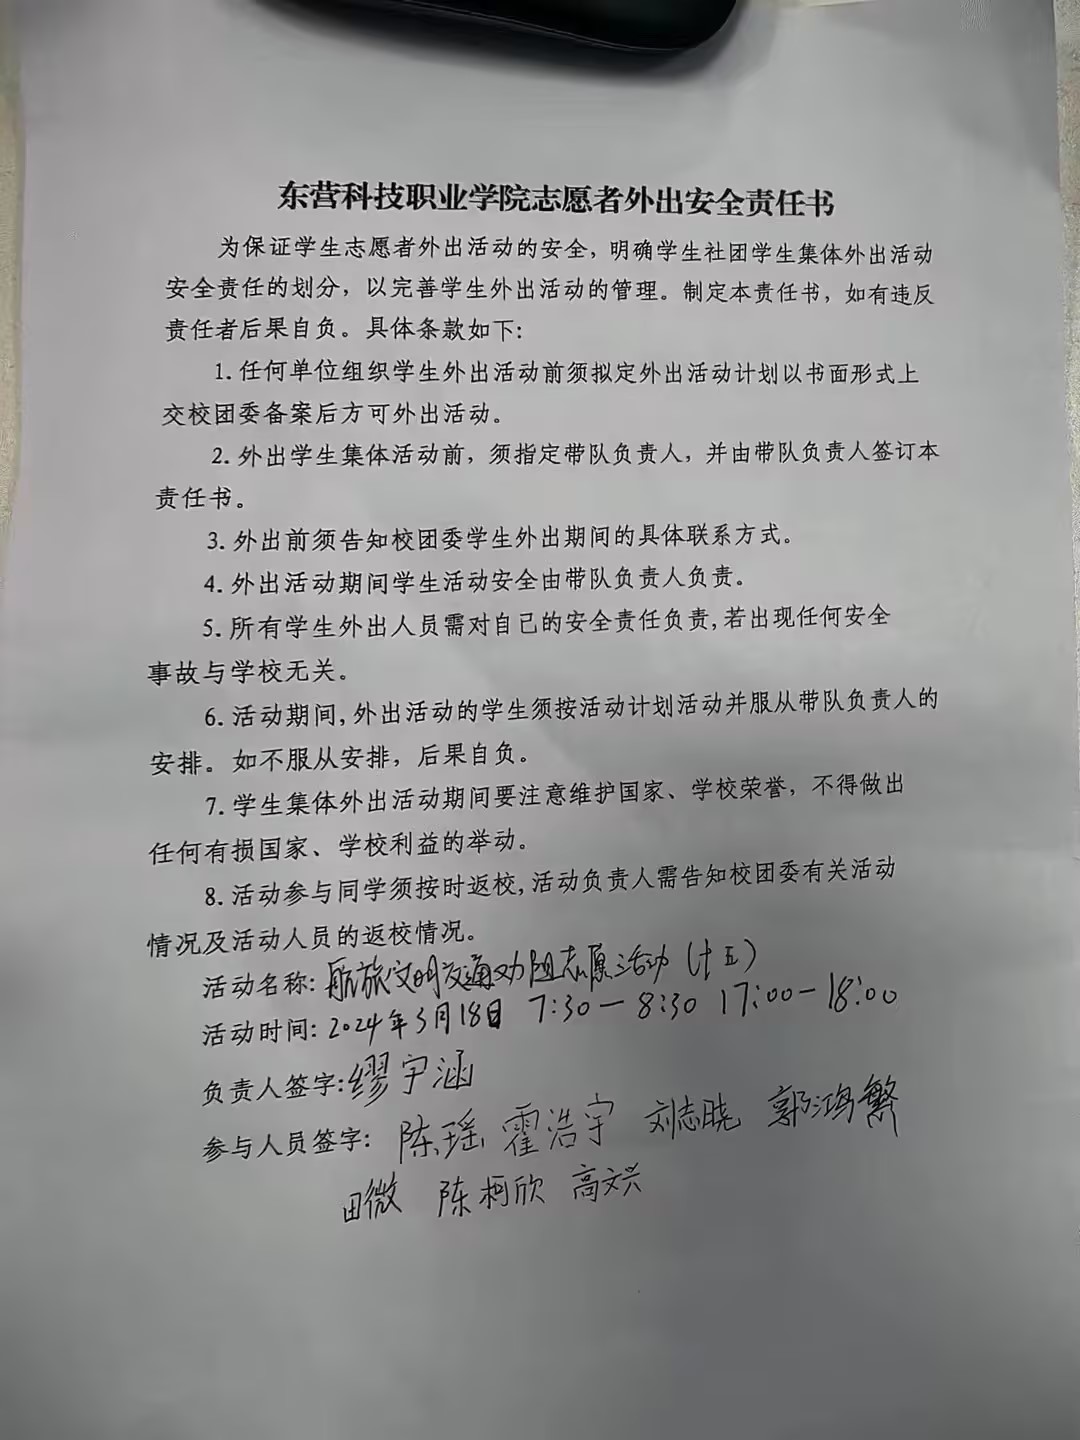 东营科技职业学院志愿者外出安全责任书
为保证学生志愿者外出活动的安全，明确学生社团学生集体外出活动
安全责任的划分，以完善学生外出活动的管理。制定本责任书，如有违反
责任者后果自负。具体条款如下：
1.任何单位组织学生外出活动前须拟定外出活动计划以书面形式上
交校团委备案后方可外出活动。
2.外出学生集体活动前，须指定带队负责人，并由带队负责人签订本
责任书。
3.外出前须告知校团委学生外出期间的具体联系方式。
4.外出活动期间学生活动安全由带队负责人负责。
5.所有学生外出人员需对自己的安全责任负责,若出现任何安全
事故与学校无关。
6.活动期间,外出活动的学生须按活动计划活动并服从带队负责人的
安排。如不服从安排，后果自负。
7.学生集体外出活动期间要注意维护国家、学校荣誉，不得做出
任何有损国家、学校利益的举动。
8.活动参与同学须按时返校,活动负责人需告知校团委有关活动
情况及活动人员的返校情况。
活动名称：航旅文明交通劝阻志愿活动（十五）
活动时间：2024年3月18日 7:30—8:30 17:00—18:00
负责人签字：缪宇涵
参与人员签字：陈瑶 霍浩宇 刘志晓 郭鸿繁
田微 陈柯欣 高文兴